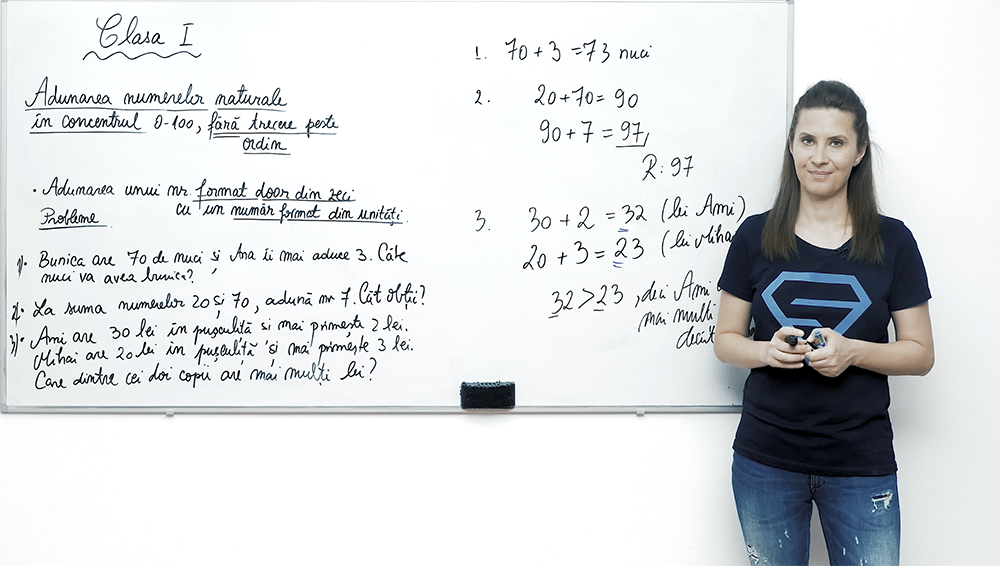 Clasa I
Adunarea numerelor naturale
în concentrul 0-100, fără trecere peste
ordin
• Adunarea unui nr. format doar din zeci
cu un număr format din unități.
Probleme
1). Bunica are 70 de nuci și Ana îi mai aduce 3. Câte
nuci va avea bunica?
2). La suma numerelor 20 și 70, adună nr 7. Cât obții?
3). Ami are 30 lei în pușculiță și mai primește 2 lei.
Mihai are 20 lei în pușculiță și mai primește 3 lei.
Care dintre cei doi copii are mai mulți lei?
1. 70 + 3 = 73 nuci
2. 20+70= 90
90 + 7 = 97,
R: 97
3. 30 + 2 = 32 (lei Ami)
20 + 3 = 23 (lei Miha
32 > 23, deci Ami
mai mulți
decât